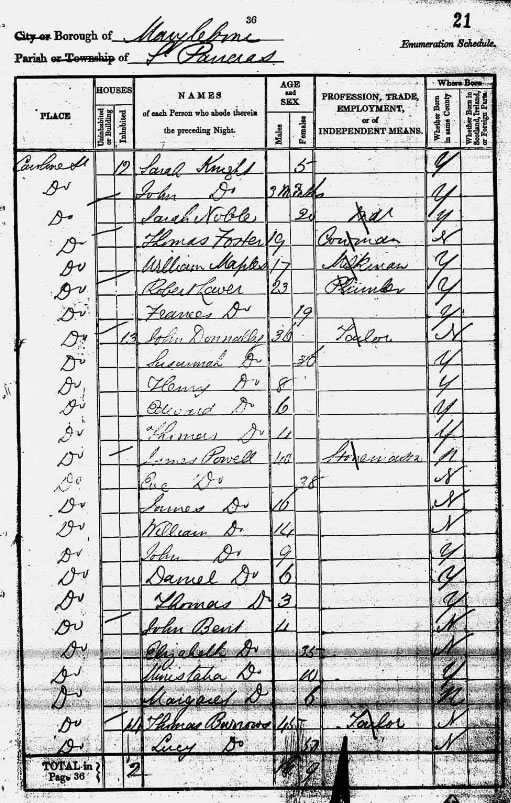 36
21
City or Borough of Marylebone
Enumeration Schedule.
Parish or Township of St Pancras
PLACE
HOUSES
Uninhabited or Building
Inhabited
NAMES
of each Person who abode therein the preceding Night.
AGE and SEX
Males
Females
PROFESSION, TRADE, EMPLOYMENT, or of INDEPENDENT MEANS.
Where Born
Whether Born in same County
Whether Born in Scotland, Ireland, or Foreign Parts.
Caroline St 12 Sarah Knight 5 Y
Do John Do Y
Do Sarah Noble 20 Y
Do Thomas Foster 19 Cowman N
Do William Maples 17 Milkman Y
Do Robert Laver 23 Plumber Y
Do Frances Do 19 Y
Do 13 John Donnally 36 Tailor N
Do Susannah Do 30 Y
Do Henry Do 8 Y
Do Edward Do 6 Y
Do Thomas Do 4 Y
Do James Powell 40 Stonemason N
Do Eve Do 38 N
Do James Do 16 N
Do William Do 14 N
Do John Do 9 Y
Do Daniel Do 6 Y
Do Thomas Do 3 Y
Do John Bent 4 N
Do Elizabeth Do 35 N
Do Do 10 Y
Do Margaret D 6 N
Do 14 Thomas Burrows 45 Tailor N
Do Lucy Do 50 N
TOTAL in Page 36 2 9